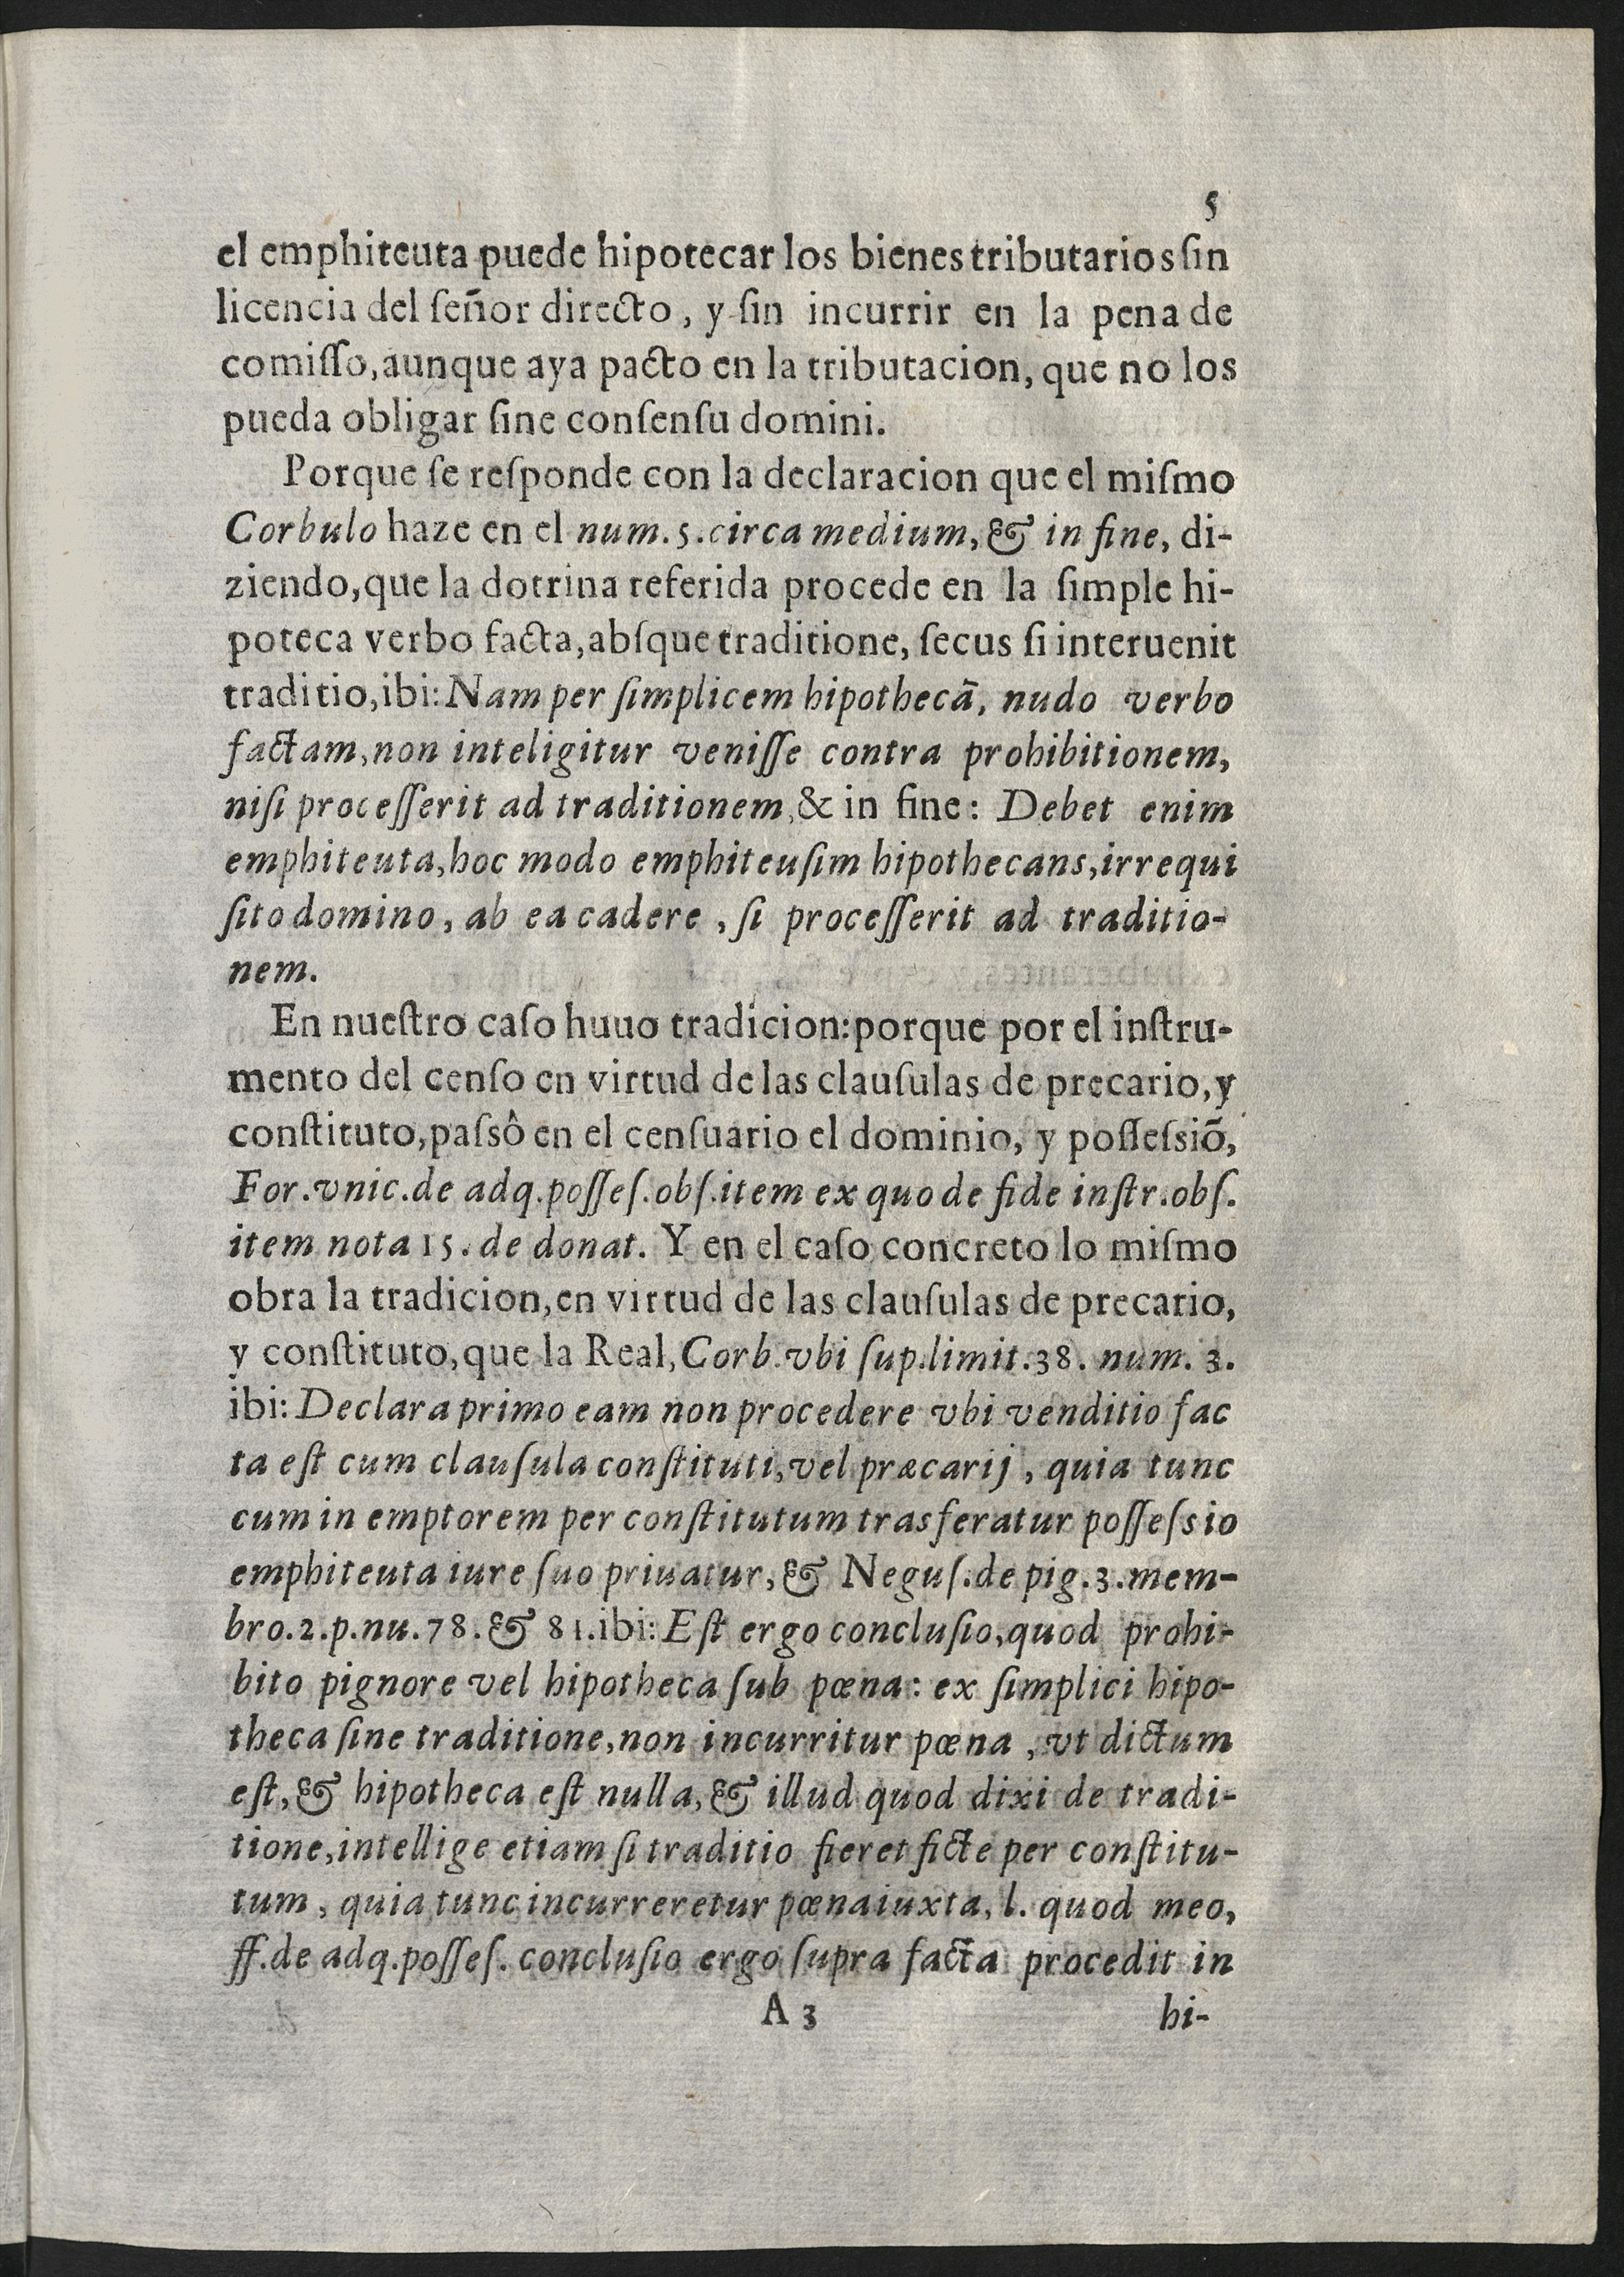 5
el emphiteuta puede hipotecar los bienes tributarios ſin
licencia del ſeñor directo, y ſin incurrir en la pena de
comiſſo, aunque aya pacto en la tributacion, que no los
pueda obligar ſine conſenſu domini.
Porque ſe reſponde con la declaracion que el miſmo
Corbulo haze en el num. 5. circa medium, & in fine, di-
ziendo, que la dotrina referida procede en la ſimple hi-
poteca verbo facta, abſque traditione, ſecus ſi interuenit
traditio, ibi: Nam per ſimplicem hipothecã, nudo verbo
factam, non inteligitur veniſſe contra prohibitionem,
niſi proceſſerit ad traditionem, & in fine: Debet enim
emphiteuta, hoc modo emphiteuſim hipothecans, irrequi
ſito domino, ab ea cadere, ſi proceſſerit ad traditio-
nem.
En nueſtro caſo huuo tradicion: porque por el inſtru-
mento del cenſo en virtud de las clauſulas de precario, y
conſtituto, paſsô en el cenſuario el dominio, y poſſeſsiõ,
For. vnic. de adq. poſſeſ. obſ. item ex quo de fide inſtr. obſ.
item nota 15. de donat. Y en el caſo concreto lo miſmo
obra la tradicion, en virtud de las clauſulas de precario,
y conſtituto, que la Real, Corb. vbi ſup. limit. 38. num. 3.
ibi: Declara primo eam non procedere vbi venditio fac
ta eſt cum clauſula conſtituti, vel præcarij, quia tunc
cum in emptorem per conſtitutum trasferatur poſſeſsio
emphiteuta iure ſuo priuatur, & Neguſ. de pig. 3. mem-
bro. 2. p. nu. 78. & 81. ibi: Eſt ergo concluſio, quod prohi-
bito pignore vel hipotheca ſub pœna: ex ſimplici hipo-
theca ſine traditione, non incurritur pœna, vt dictum
eſt, & hipotheca eſt nulla, & illud quod dixi de tradi-
tione, intellige etiam ſi traditio fieret ficte per conſtitu-
tum, quia tunc incurreretur pœna iuxta, l. quod meo,
ff. de adq. poſſeſ. concluſio ergo ſupra facta procedit in
A 3 hi-